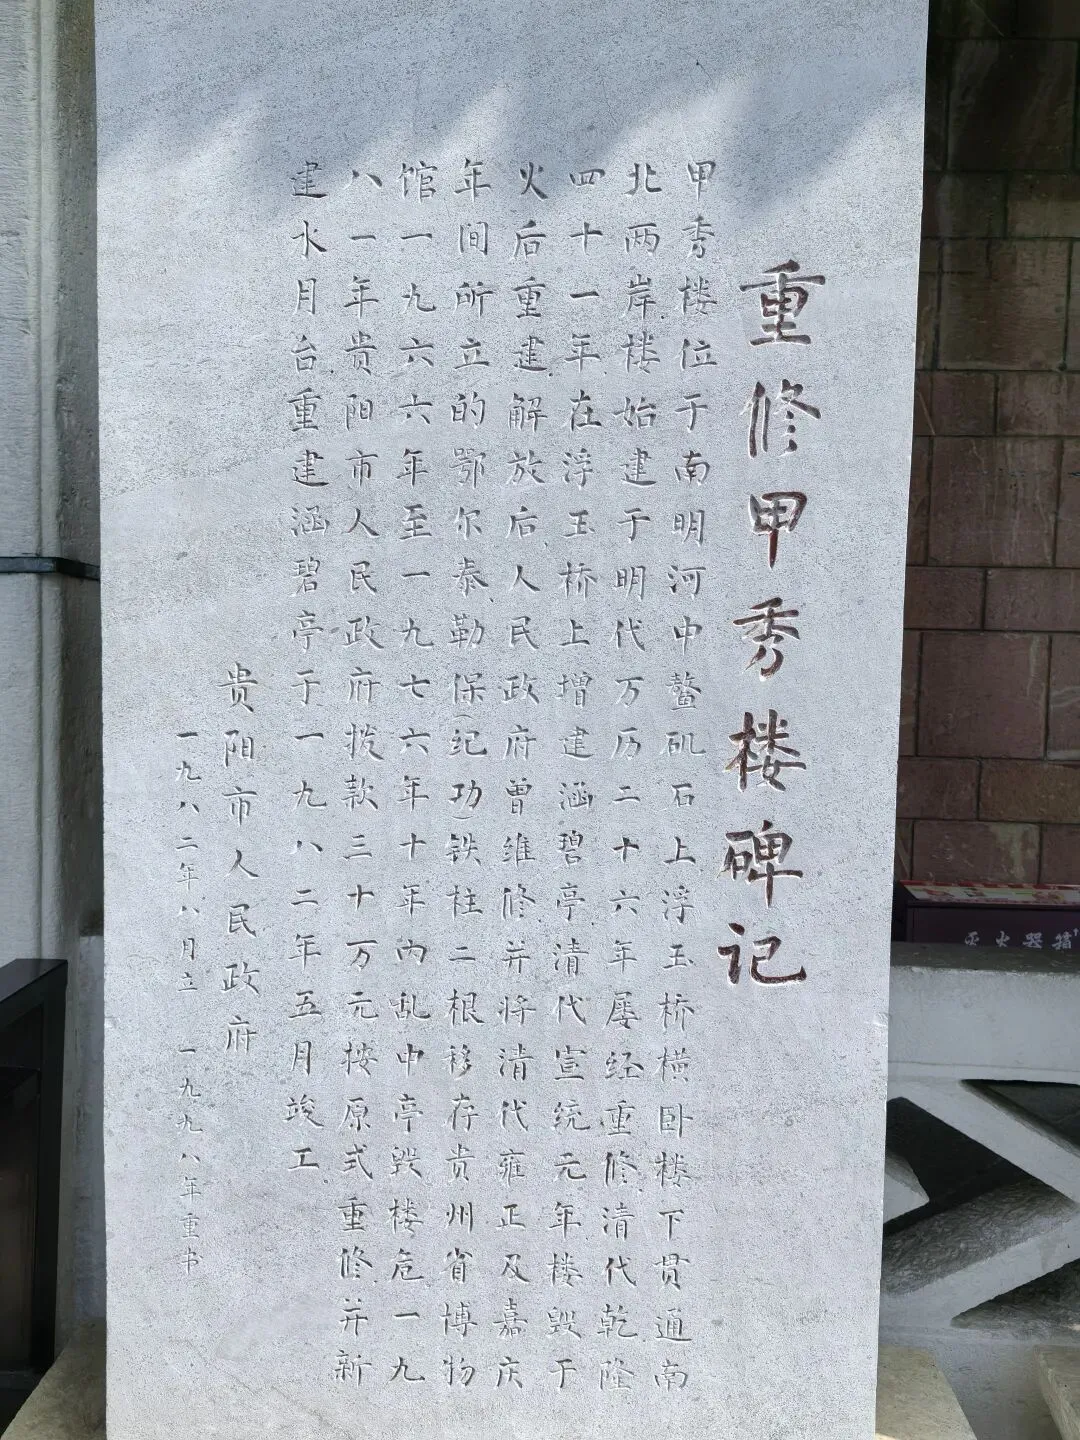 重修甲秀楼碑记
甲秀楼位于南明河中鳌矶石上浮玉桥横卧楼下贯通南
北两岸楼始建于明代万历二十六年屡经重修清代乾隆
四十一年在浮玉桥上增建涵碧亭清代宣统元年楼毁于
火后重建解放后人民政府曾维修并将清代雍正及嘉庆
年间所立的鄂尔泰勒保(纪功)铁柱二根移存贵州省博物
馆一九六六年至一九七六年十年内乱中亭毁楼危一九
八一年贵阳市人民政府拨款三十万元按原式重修并新
建水月台重建涵碧亭于一九八二年五月竣工
贵阳市人民政府
一九八二年八月立 一九九八年重书
灭火器箱